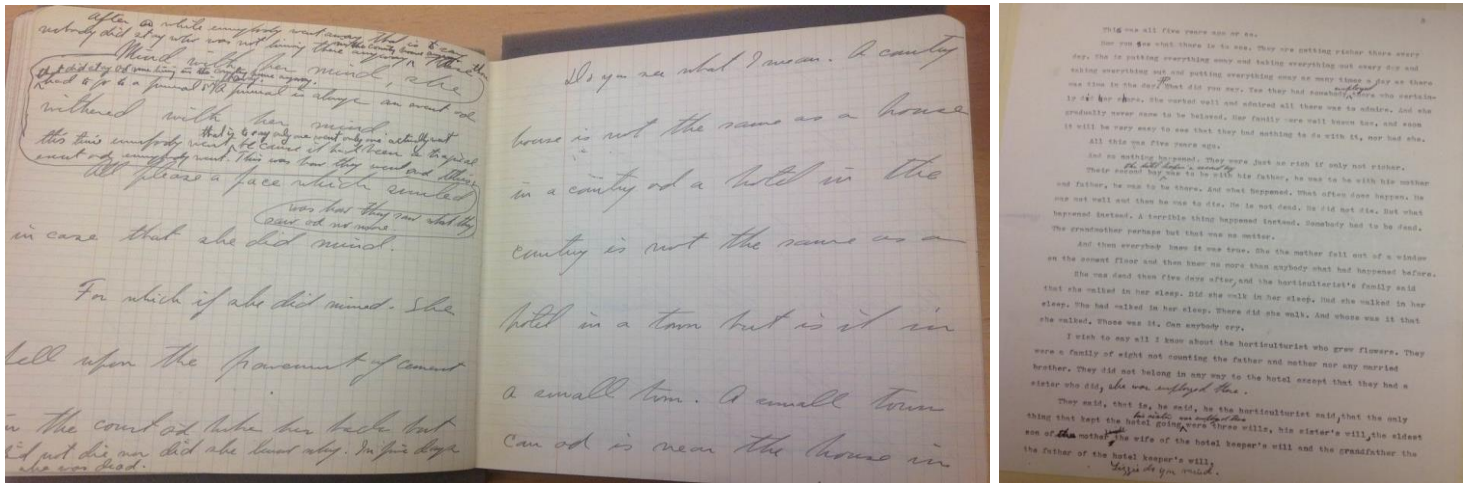 After a while everybody went away that is to say
nobody did stay who was not living there anyway
Mind with her mind, she
had to go to a funeral. A funeral is always an event
withered with her mind.
that is to say only one went only one actually went
this time everybody went, because it had been a tragical
event everybody went. This was how they
All please a face which smiled
was how they saw what they
saw no more
in case that she did mind.
For which if she did mind. She
fell upon the pavement of cement
in the court broke her back but
did not die nor did she know why. In five days
she was dead.
Do you see what I mean. A country
house is not the same as a house
in a country a hotel in the
country is not the same as a
hotel in a town but is it in
a small town. A small town
can is near the house in
This was all five years ago or so.
Now you see what there is to see. They are getting richer there every
day. She is putting everything away and taking everything out every day and
taking everything out and putting everything away as many times a day as there
was time in the day. What did you say. Yes they had somebody employed there who certain-
ly did her share. She worked well and admired all there was to admire. And she
gradually never came to be beloved. Her family were well known too, and soon
it will be very easy to see that they had nothing to do with it, nor had she.
All this was five years ago.
And so nothing happened. They were just as rich if only not richer.
the hotel keeper's second boy
Their second boy was to be with his father, he was to be with his mother
and father, he was to be there. And what happened. What often does happen. He
was not well and then he was to die. He is not dead. He did not die. But what
happened instead. A terrible thing happened instead. Somebody had to be dead.
The grandmother perhaps but that was no matter.
And then everybody knew it was true. She the mother fell out of a window
on the cement floor and then knew no more than anybody what had happened before.
She was dead then five days after, and the horticulturist's family said
that she walked in her sleep. Did she walk in her sleep. Had she walked in her
sleep. Who had walked in her sleep. Where did she walk. And whose was it that
she walked. Whose was it. Can anybody cry.
I wish to say all I know about the horticulturist who grew flowers. They
were a family of eight not counting the father and mother nor any married
brother. They did not belong in any way to the hotel except that they had a
sister who did, she was employed there.
They said, that is, he said, he the horticulturist said, that the only
his sister was employed there
thing that kept the hotel going were three wills, his sister's will, the eldest
son of the mother the wife of the hotel keeper's will and the grandfather the
the father of the hotel keeper's will.
Lizzie do you mind.